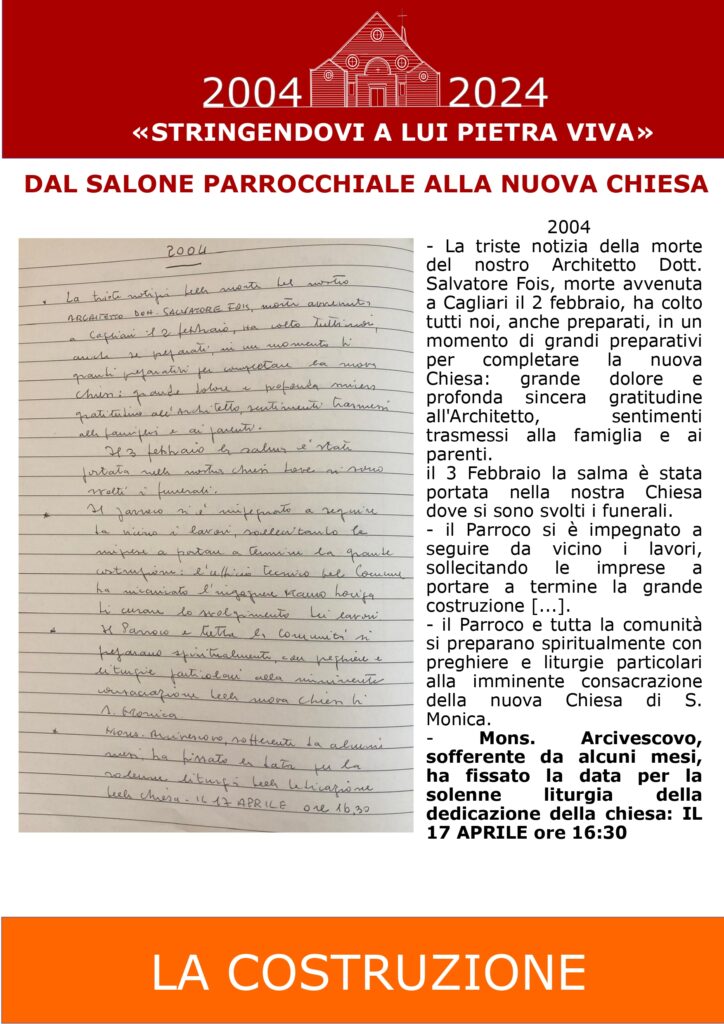 2004 2024
«STRINGENDOVI A LUI PIETRA VIVA»
DAL SALONE PARROCCHIALE ALLA NUOVA CHIESA
2004
La triste notizia della morte del nostro
ARCHITETTO DOTT. SALVATORE FOIS, morte avvenuta
a Cagliari il 2 febbraio, ha colto tutti noi,
anche se preparati, in un momento di
grandi preparativi per completare la nuova
Chiesa: grande dolore e profonda sincera
gratitudine all'Architetto, sentimenti trasmessi
alla famiglia e ai parenti.
Il 3 febbraio la salma è stata
portata nella nostra chiesa dove si sono
svolti i funerali.
Il parroco si è impegnato a seguire
da vicino i lavori, sollecitando le
imprese a portare a termine la grande
costruzione: l'ufficio tecnico del Comune
ha incaricato l'ingegnere Mauro
di curare lo svolgimento dei lavori
Il Parroco e tutta la Comunità si
preparano spiritualmente, con preghiere e
liturgie particolari alla imminente
consacrazione della nuova chiesa di
S. MONICA
Mons. Arcivescovo, sofferente da alcuni
mesi, ha fissato la data per la
solenne liturgia della dedicazione
della chiesa - IL 17 APRILE ore 16,30
2004
- La triste notizia della morte
del nostro Architetto Dott.
Salvatore Fois, morte avvenuta
a Cagliari il 2 febbraio, ha colto
tutti noi, anche preparati, in un
momento di grandi preparativi
per completare la nuova
Chiesa: grande dolore e
profonda sincera gratitudine
all'Architetto, sentimenti
trasmessi alla famiglia e ai
parenti.
il 3 Febbraio la salma è stata
portata nella nostra Chiesa
dove si sono svolti i funerali.
- il Parroco si è impegnato a
seguire da vicino i lavori,
sollecitando le imprese a
portare a termine la grande
costruzione [...].
- il Parroco e tutta la comunità
si preparano spiritualmente con
preghiere e liturgie particolari
alla imminente consacrazione
della nuova Chiesa di S.
Monica.
- Mons. Arcivescovo,
sofferente da alcuni mesi,
ha fissato la data per la
solenne liturgia della
dedicazione della chiesa: IL
17 APRILE ore 16:30
LA COSTRUZIONE